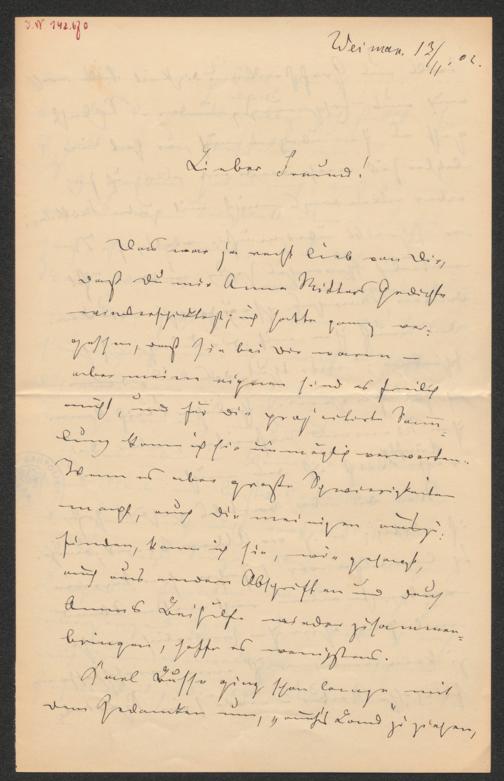 J.N. 142.670
Weimar. 13/11. 02.
Lieber Freund!
Das war ja recht lieb von Dir,
daß Du mir Anna Ritters Gedichte
wiederschicktest; ich hatte ganz ver-
gessen, daß sie bei Dir waren —
aber meine eignen sind es freilich
nicht, und für die projectierte Samm-
lung kann ich sie unmöglich verwerten.
Wenn es aber große Schwierigkeiten
macht, auch die meinigen aufzu-
finden, kann ich sie, wie gesagt,
auch aus andern Abschriften und durch
Annas Beihülfe wieder zusammen-
bringen, hoffe es wenigstens.
Karl Busse ging schon lange mit
dem Gedanken um, „aufs Land“ zu ziehen,